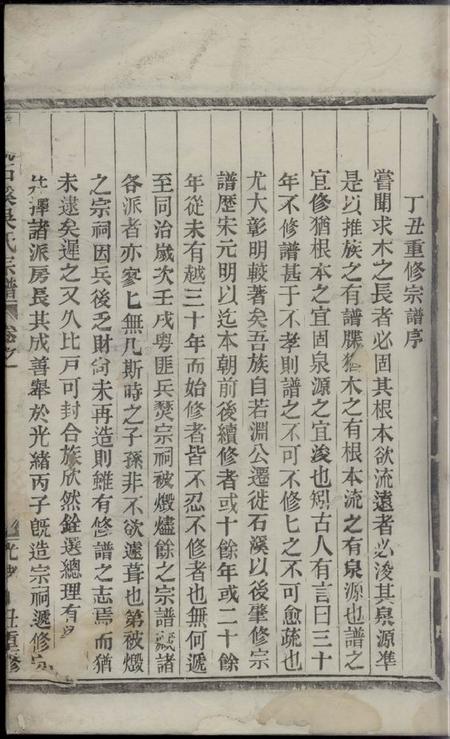 丁丑重修宗譜序
嘗聞求木之長者必固其根本欲流遠者必浚其泉源準
是以推族之有譜牒猶木之有根本流之有泉源也譜之
宜修猶根本之宜固泉源之宜浚也矧古人有言曰三十
年不修譜甚于不孝則譜之不可不修匕之不可愈疏也
尤大彰明較著矣吾族自若淵公遷徙石溪以後肇修宗
譜歷宋元明以迄本朝前後續修者或十餘年或二十餘
年從未有越三十年而始修者皆不忍不修者也無何遞
至同治嵗次壬戌粵匪兵燹宗祠被燬燼餘之宗譜藏諸
各派者亦寥匕無几斯時之子孫非不欲遽葺也第被燬
之宗祠因兵後乏財尙未再造則雖有修譜之志焉而猶
未逮矣遲之又久比戸可封合族欣然銓選總理有
擇諸派房長其成善舉於光緒丙子旣造宗祠遞修宗
石溪吳氏宗譜 光緒丑重修